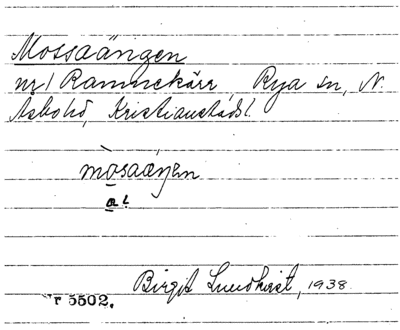 Mossaängen
nr 1 Rammekärr, Rya sn, N.
Asbo hd, Kristianstads l.
mòsaáŋen
a!
Birgit Lundkvist, 1938.
r 5502.